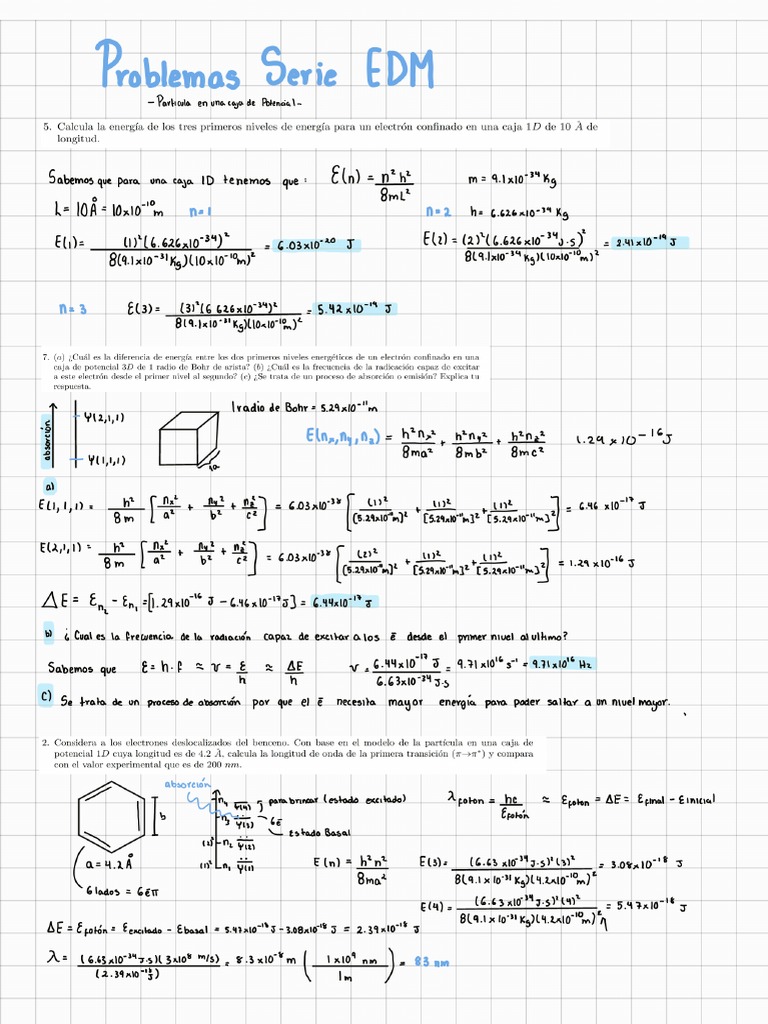 Problemas Serie EDM
- Partícula en una caja de Potencial -
5. Calcula la energía de los tres primeros niveles de energía para un electrón confinado en una caja 1D de 10 Å de
longitud.
Sabemos que para una caja 1D tenemos que: E(n) = n²h² / 8mL²    m = 9.1x10⁻³⁴ Kg
L = 10Å = 10x10⁻¹⁰ m    n=1    n=2    h = 6.626x10⁻³⁴ Kg
E(1) = (1)²(6.626x10⁻³⁴)² / 8(9.1x10⁻³¹Kg)(10x10⁻¹⁰m)² = 6.03x10⁻²⁰ J    E(2) = (2)²(6.626x10⁻³⁴J.s)² / 8(9.1x10⁻³⁴Kg)(10x10⁻¹⁰m)² = 2.41x10⁻¹⁹ J
n=3    E(3) = (3)²(6 626x10⁻³⁴)² / 8(9.1x10⁻³¹Kg)(10x10⁻¹⁰m)² = 5.42x10⁻¹⁹ J
7. (a) ¿Cuál es la diferencia de energía entre los dos primeros niveles energéticos de un electrón confinado en una
caja de potencial 3D de 1 radio de Bohr de arista? (b) ¿Cuál es la frecuencia de la radicación capaz de excitar
a este electrón desde el primer nivel al segundo? (c) ¿Se trata de un proceso de absorción o emisión? Explica tu
respuesta.
absorción
Ψ(2,1,1)
Ψ(1,1,1)
1 radio de Bohr = 5.29x10⁻¹¹m
E(nx,ny,nz) = h²nx²/8ma² + h²ny²/8mb² + h²nz²/8mc²    1.29x10⁻¹⁶J
a)
E(1,1,1) = h²/8m [nx²/a² + ny²/b² + nz²/c²] = 6.03x10⁻³⁸ [(1)²/(5.29x10⁻¹¹m)² + (1)²/[5.29x10⁻¹¹m]² + (1)²/[5.29x10⁻¹¹m]²] = 6.46 x10⁻¹⁷ J
E(2,1,1) = h²/8m [nx²/a² + ny²/b² + nz²/c²] = 6.03x10⁻³⁸ [(2)²/(5.29x10⁻¹¹m)² + (1)²/[5.29x10⁻¹¹m]² + (1)²/[5.29x10⁻¹¹m]²] = 1.29 x10⁻¹⁶ J
ΔE = En₂ - En₁ = [1.29x10⁻¹⁶ J - 6.46x10⁻¹⁷J] = 6.44x10⁻¹⁷ J
b) ¿Cual es la frecuencia de la radiación capaz de excitar a los ē desde el primer nivel al ultimo?
Sabemos que E = h·f ≈ ν = E/h ≈ ΔE/h    ν = 6.44x10⁻¹⁷ J / 6.63x10⁻³⁴ J.s = 9.71x10¹⁶ s⁻¹ = 9.71x10¹⁶ Hz
c) Se trata de un proceso de absorción por que el ē necesita mayor energía para poder saltar a un nivel mayor.
2. Considera a los electrones deslocalizados del benceno. Con base en el modelo de la partícula en una caja de
potencial 1D cuya longitud es de 4.2 Å, calcula la longitud de onda de la primera transición (π→π*) y compara
con el valor experimental que es de 200 nm.
absorción
b
a = 4.2Å
6 lados = 6eπ
n₄ Ψ(4)
n₃ Ψ(3)
(2)² n₂ Ψ(2)
(1)² n₁ Ψ(1)
para brincar (estado excitado)
6ē
Estado Basal
λfoton = hc / Efotón ≈ Efoton = ΔE = Efinal - Einicial
E(n) = h²n² / 8ma²    E(3) = (6.63 x10⁻³⁴J.s)²(3)² / 8(9.1x10⁻³¹Kg)(4.2x10⁻¹⁰m)² = 3.08x10⁻¹⁸ J
E(4) = (6.63 x10⁻³⁴J.s)²(4)² / 8(9.1x10⁻³¹Kg)(4.2x10⁻¹⁰m)² = 5.47x10⁻¹⁸ J
ΔE = Efotón = Eexcitado - Ebasal = 5.47x10⁻¹⁸J - 3.08x10⁻¹⁸J = 2.39x10⁻¹⁸ J
λ = (6.63x10⁻³⁴J.s)(3x10⁸ m/s) / (2.39x10⁻¹⁸J) = 8.3x10⁻⁸ m (1x10⁹ nm / 1m) = 83 nm